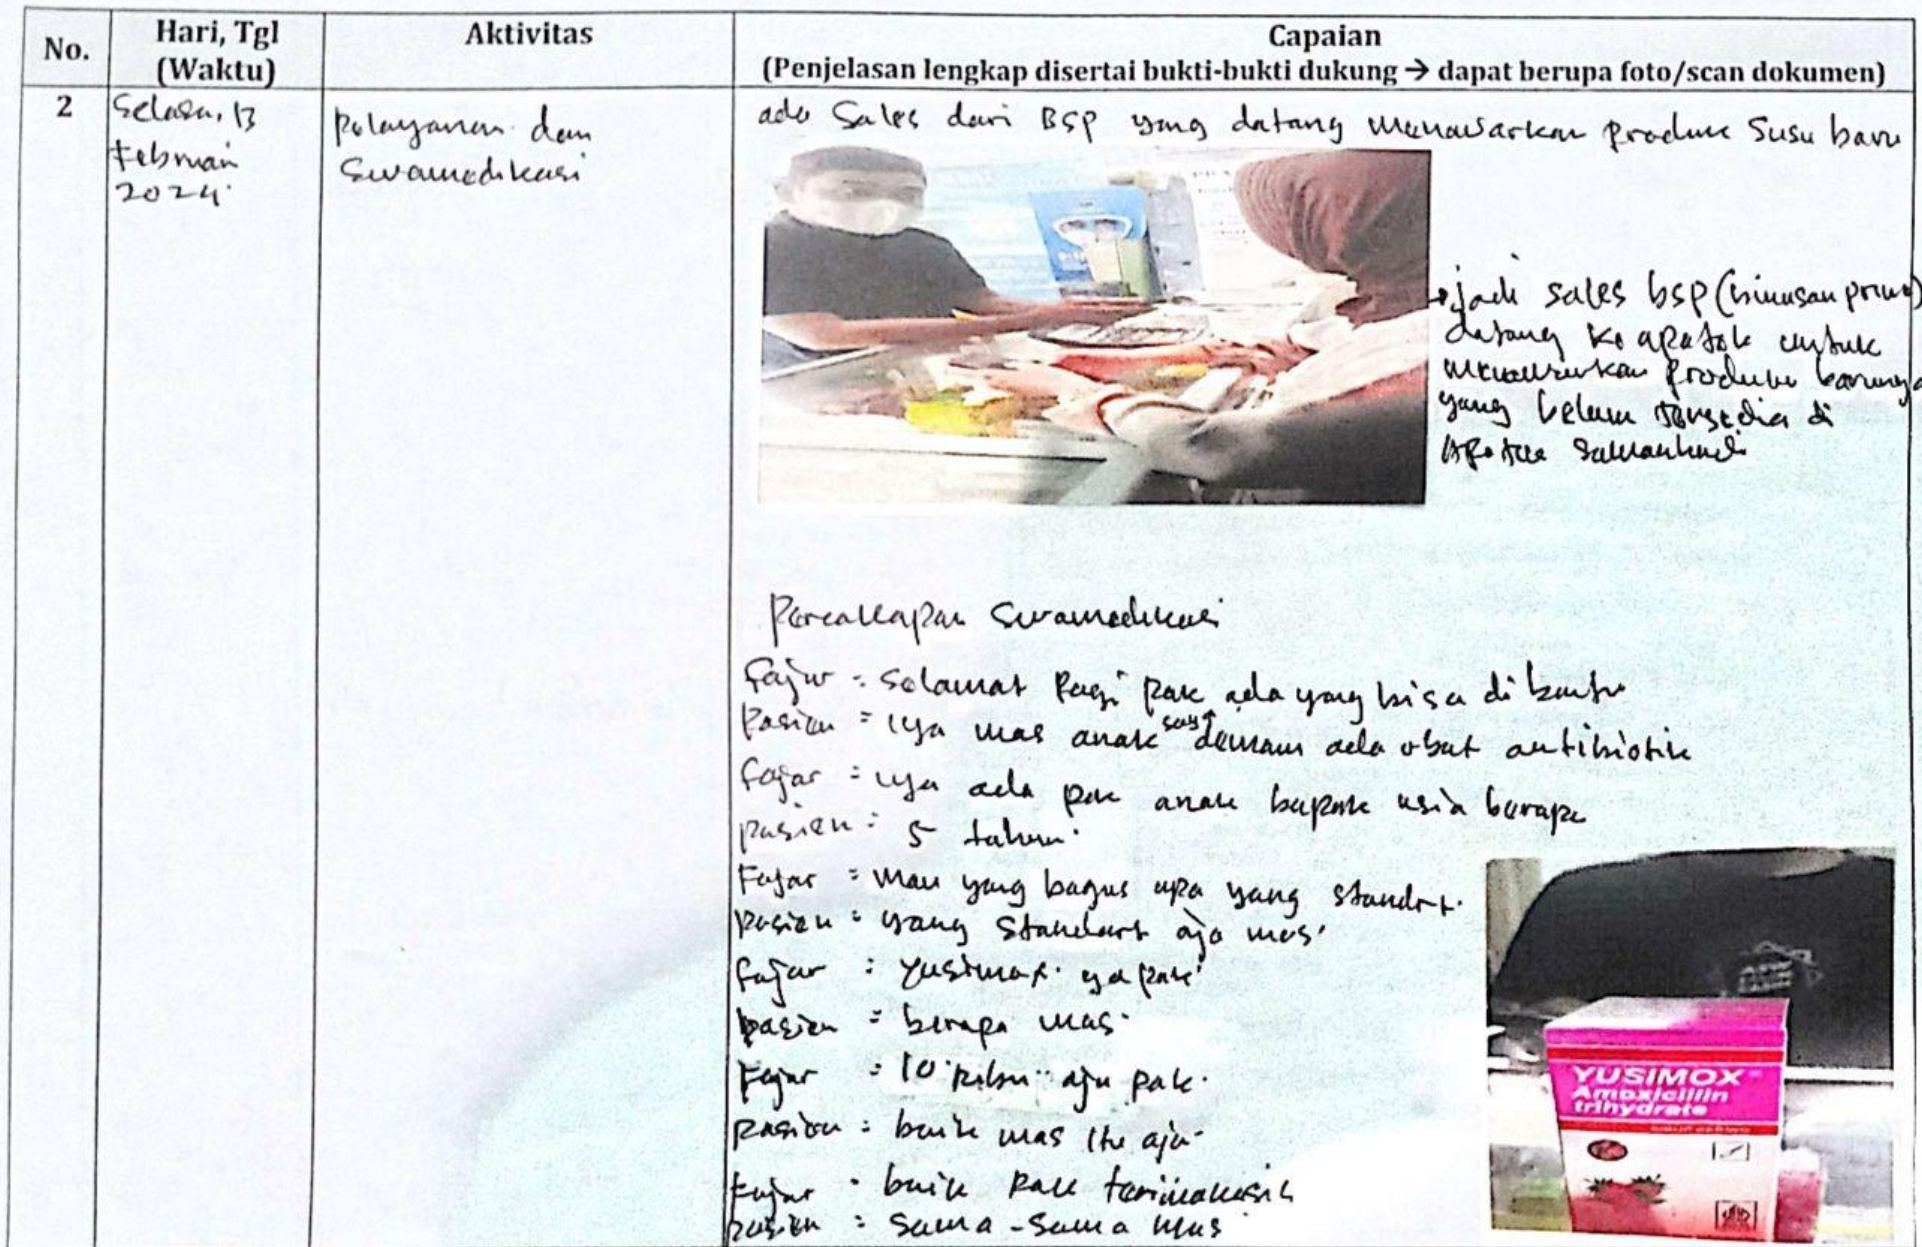 No.
Hari, Tgl
(Waktu)
Aktivitas
Capaian
(Penjelasan lengkap disertai bukti-bukti dukung → dapat berupa foto/scan dokumen)
2
Selasa, 13
Februari
2024
Pelayanan dan
Swamedikasi
ada Sales dari BSP yang datang menawarkan produk susu baru
→ jadi sales bsp (binusan prima)
datang ke apotek untuk
menawarkan produk barunya
yang belum tersedia di
Apotek
Percakapan Swamedikasi
Fajar = Selamat Pagi pak ada yang bisa di bantu
Pasien = iya mas anak saya demam ada obat antibiotik
Fajar = iya ada pak anak bapak usia berapa
pasien = 5 tahun.
Fajar = mau yang bagus apa yang standrt.
pasien = yang standart aja mas.
fajar : Yusimox ya pak
pasien = berapa mas.
Fajar = 10 ribu aja pak.
pasien = baik mas itu aja.
Fajar = baik pak terimakasih
pasien = sama-sama mas
YUSIMOX
Amoxicillin
trihydrate